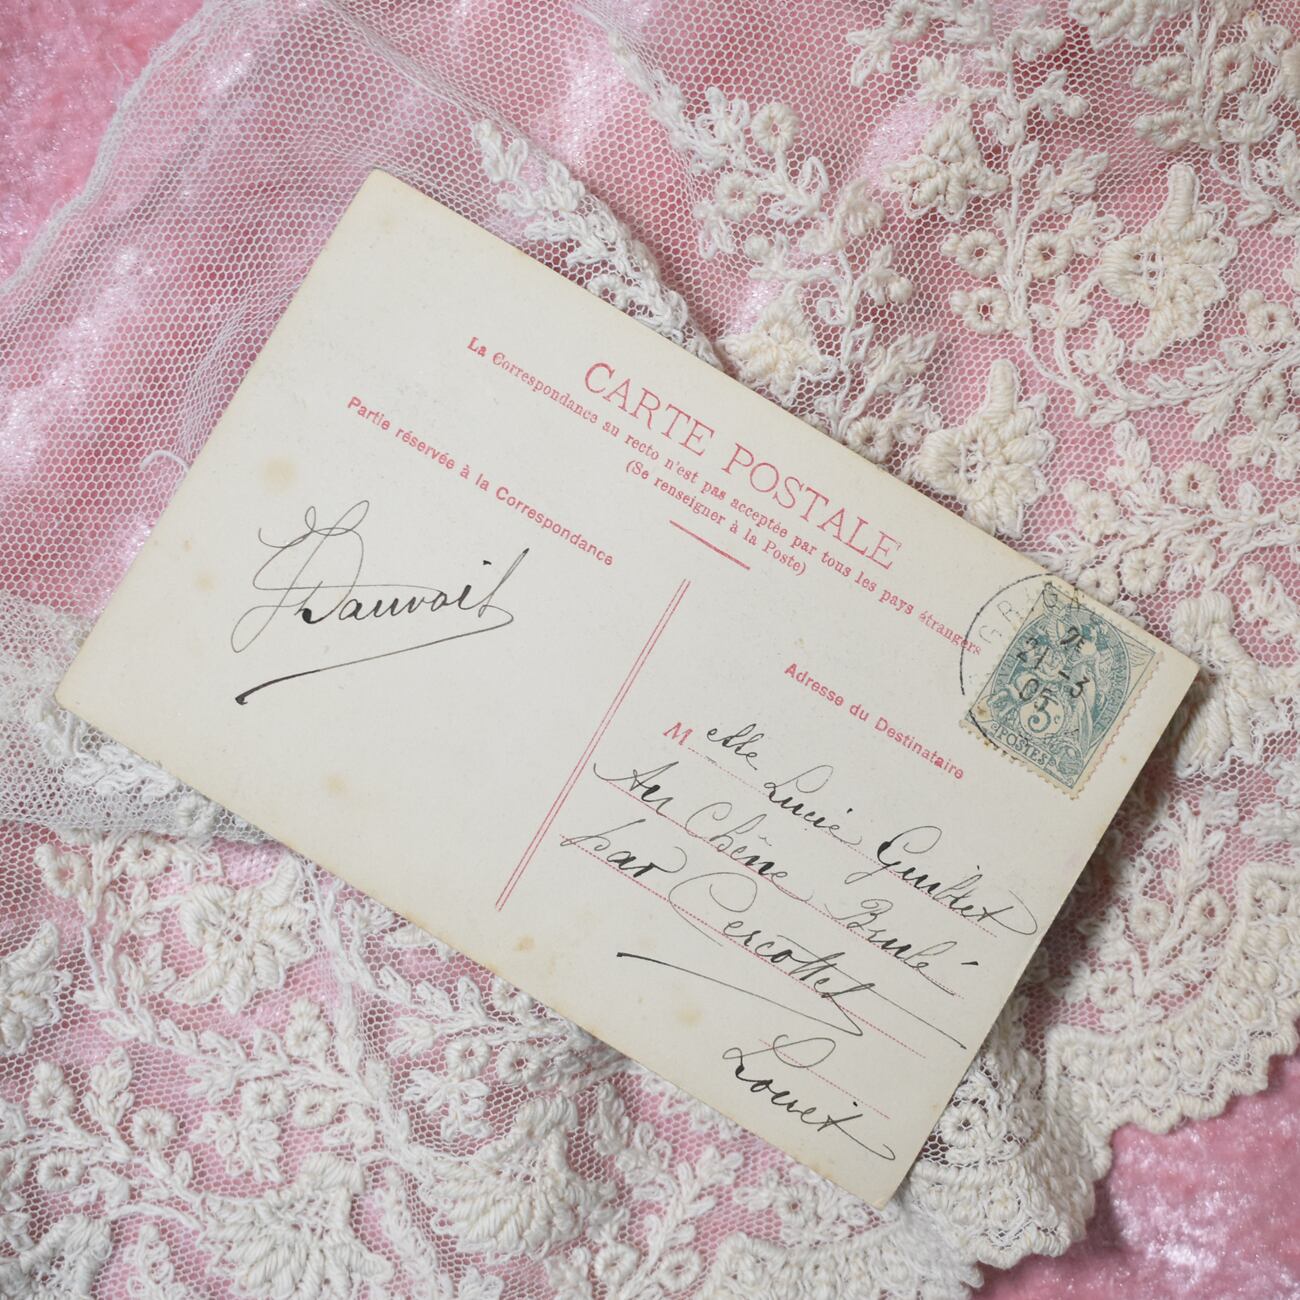 CARTE POSTALE
La Correspondance au recto n'est pas acceptée par tous les pays étrangers
(Se renseigner à la Poste)
Partie réservée à la Correspondance
Dauvoit
Adresse du Destinataire
Melle Lucie Guillet
Au Chêne Brulé
par Cercottes
Loiret
21 -3
05
5c
POSTES